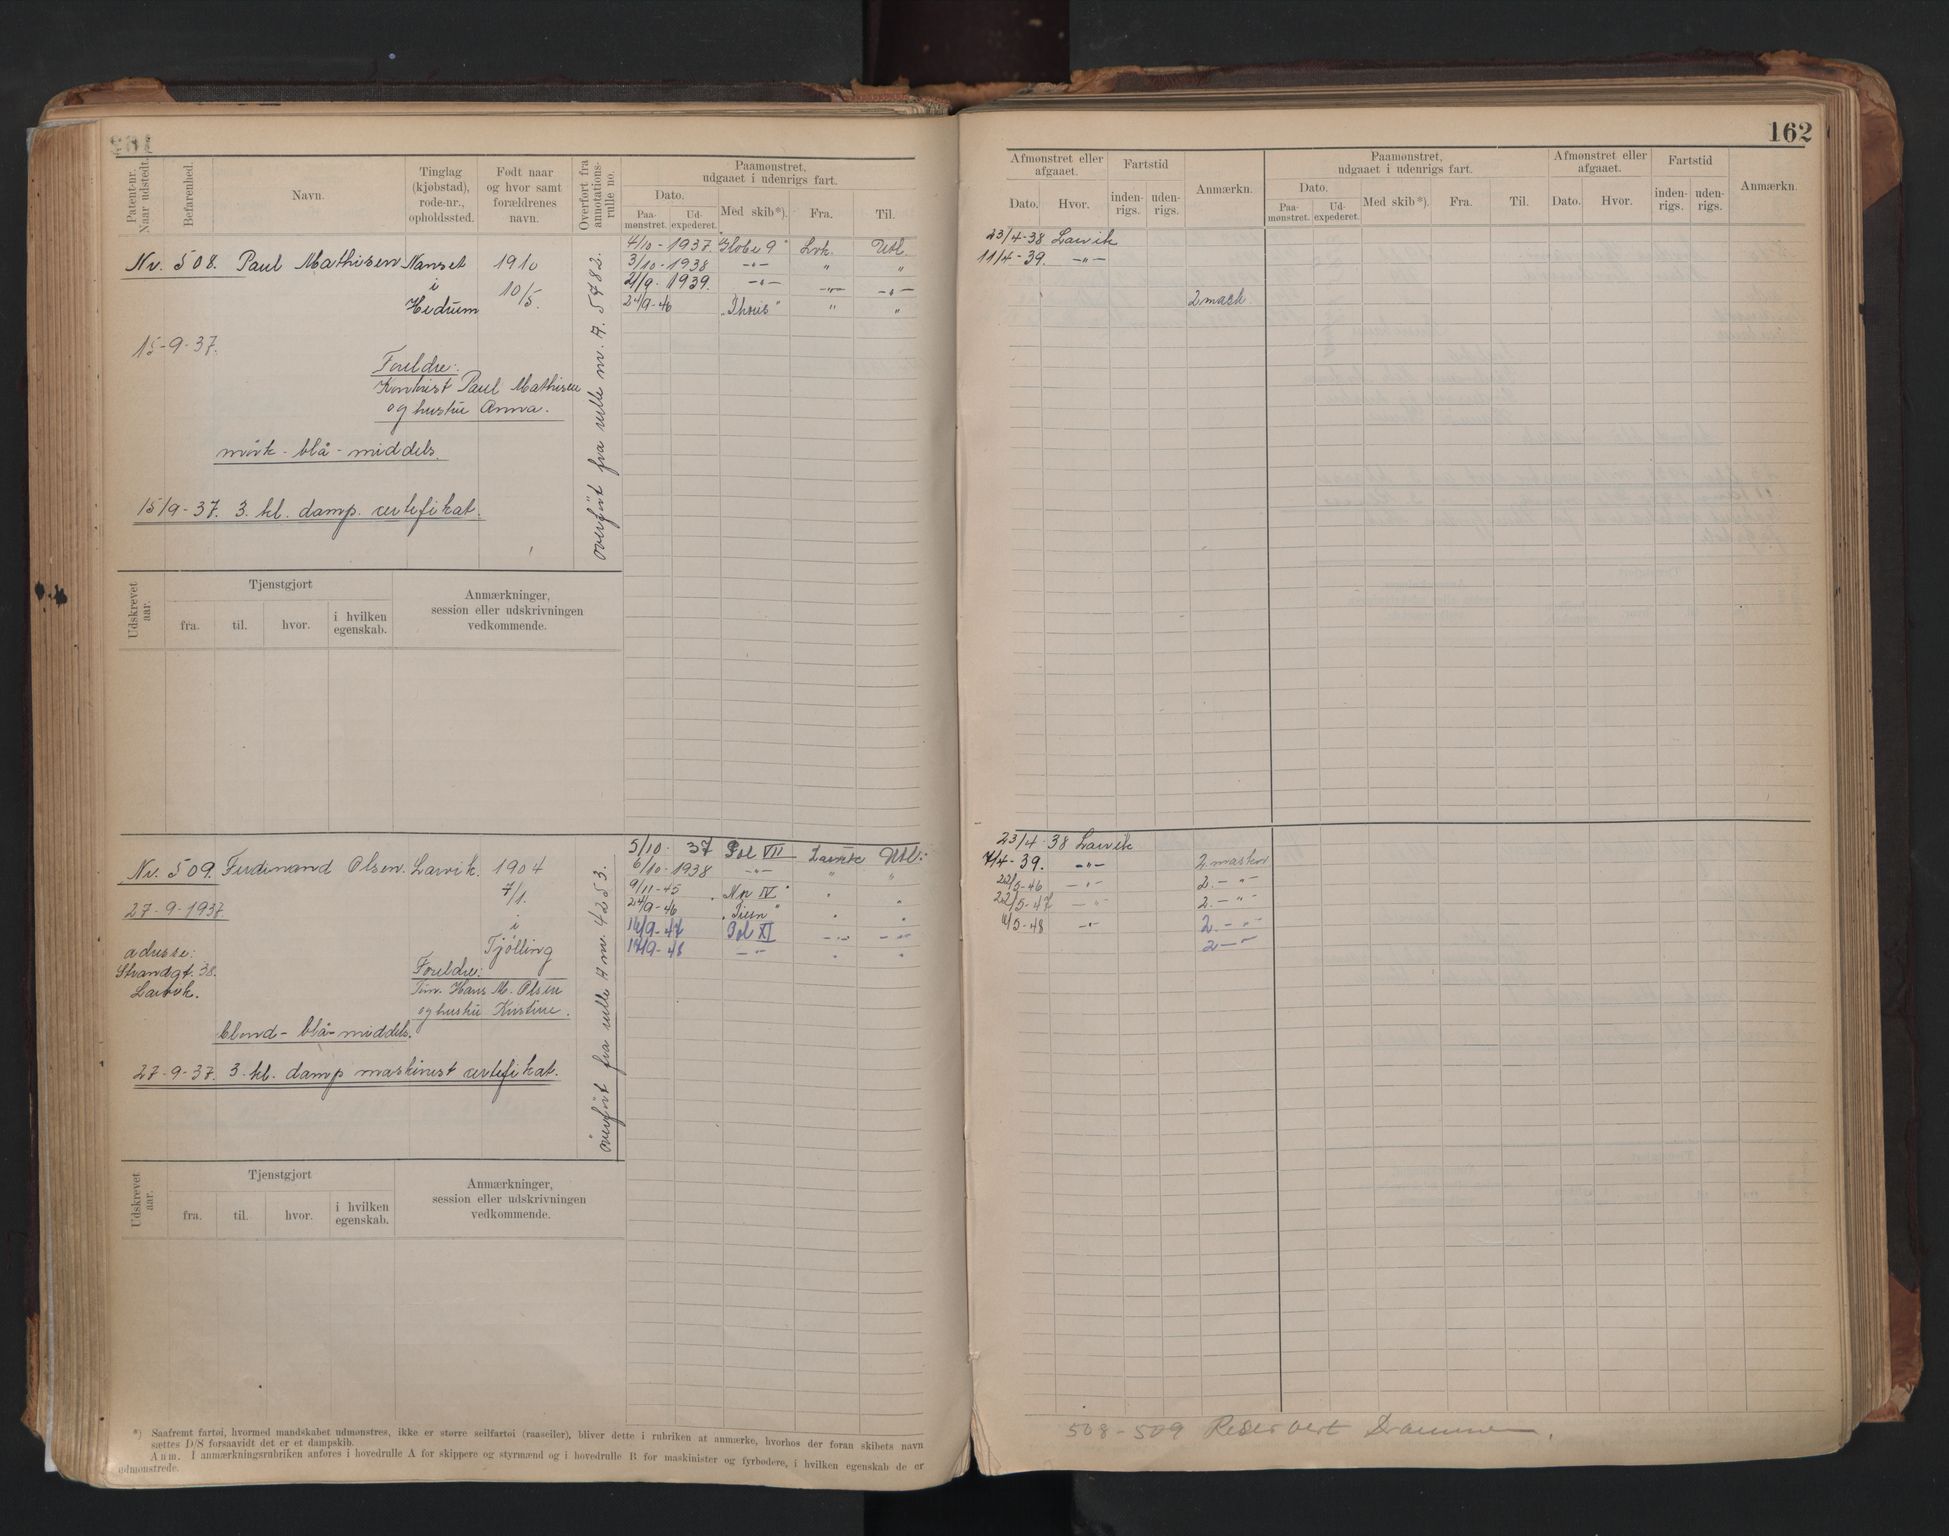 162
Patent-nr. Naar udstedt.
Befarenhed.
Navn.
Tinglag (kjøbstad), rode-nr., opholdssted.
Født naar og hvor samt forældrenes navn.
Overført fra annotations-rulle no.
Paamønstret, udgaaet i udenrigs fart.
Dato.
Paa-mønstret.
Ud-expederet.
Med skib*).
Fra.
Til.
Nr. 508. Paul Mathisen Nanset 1910
i
Hedrum 10/5.
15-9-37.
Foreldre:
Kontrist Paul Mathisen
og hustru Anna.
mörk - blå - middels.
15/9-37. 3. kl. damp. certifikat.
overført fra rulle nr. A. 5482.
4/10 - 1937. Globe 9 Lvk. Utl.
3/10 - 1938 -"- " "
21/9 - 1939. -"- -"- -"-
24/9-46 "Thoris" " "
Udskrevet aar.
Tjenstgjort
fra.
til.
hvor.
i hvilken egenskab.
Anmærkninger, session eller udskrivningen vedkommende.
Nr. 509. Ferdinand Olsen. Larvik. 1904
7/1.
27-9-1937
i
Tjølling
adresse:
Strandgt. 38.
Larvik.
Foreldre:
Töm. Hans M. Olsen
og hustru Kristine.
blond - blå - middels.
27-9-37. 3. kl. damp maskinist certifikat.
överfört fra rulle A nr. 4253.
5/10 - 37 Pol VII Larvik Utl.
6/10-1938 -"- " "
9/11-45 "Np IV" " "
24/9-46 "Tiern" " "
16/9-47 Pol XI -"- -"-
17/9-48 -"- " "
Udskrevet aar.
Tjenstgjort
fra.
til.
hvor.
i hvilken egenskab.
Anmærkninger, session eller udskrivningen vedkommende.
*) Saafremt fartøi, hvormed mandskabet udmønstres, ikke er større seilfartøi (raaseiler), bliver dette i rubriken at anmærke, hvorhos der foran skibets navn
sættes D/S forsaavidt det er et dampskib.
Anm. I anmærkningsrubriken anføres i hovedrulle A for skippere og styrmænd og i hovedrulle B for maskinister og fyrbødere, i hvilken egenskab de er
udmønstrede.
162
Afmønstret eller afgaaet.
Dato.
Hvor.
Fartstid
inden-rigs.
uden-rigs.
Anmærkn.
Paamønstret, udgaaet i udenrigs fart.
Dato.
Paa-mønstret.
Ud-expederet.
Med skib*).
Fra.
Til.
Afmønstret eller afgaaet.
Dato.
Hvor.
Fartstid
inden-rigs.
uden-rigs.
Anmærkn.
23/4-38 Larvik
11/4-39. -"-
2 mask.
23/4-38 Larvik
7/4-39. -"- 2. maskin
22/5-46 -"- 2. -"-
22/5-47 -"- 2. -"-
11/5-48 -"- 2. -"-
2 -"-
508-509 Reservert Drammen.